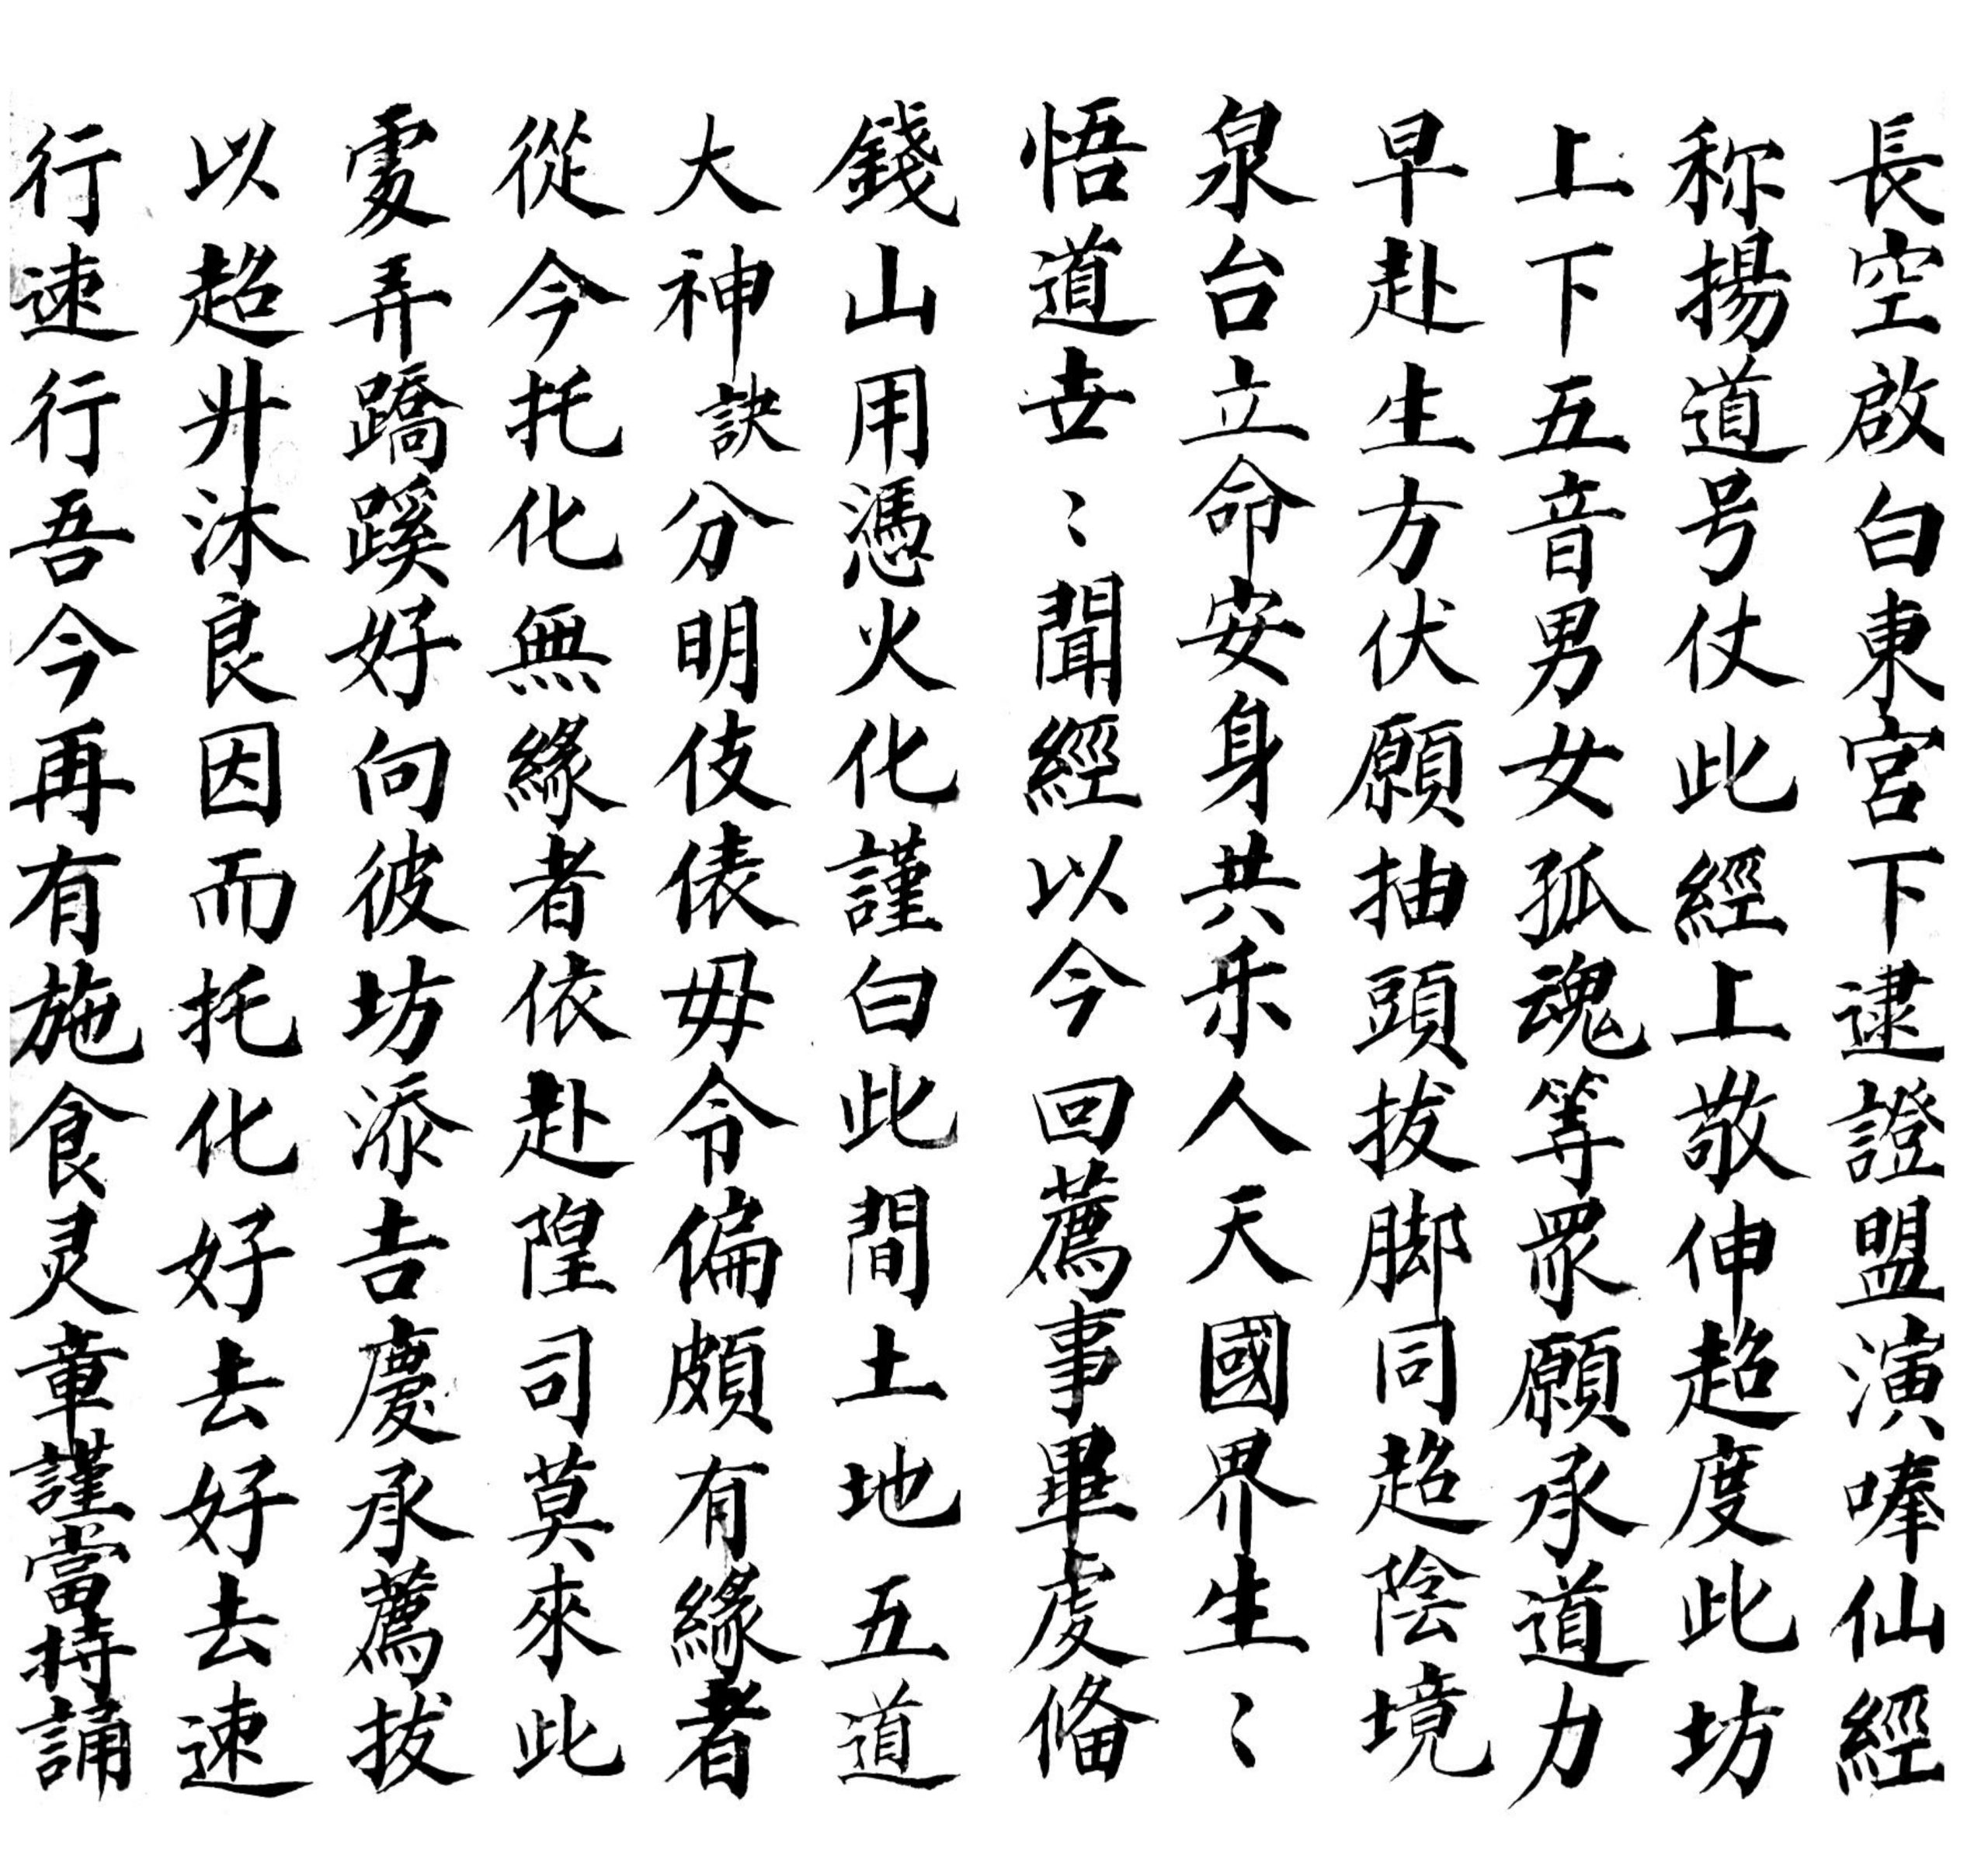 長空啟白東宮下逮證盟演唪仙經
称揚道号仗此經上敬伸超度此坊
上下五音男女孤魂等眾願承道力
早赴生方伏願抽頭拔脚同超陰境
泉台立命安身共乐人天國界生〻
悟道世〻聞經以今回薦事畢处俻
錢山用憑火化謹白此間土地五道
大神訣分明伎俵毋令偏頗有緣者
從今托化無緣者依赴隍司莫來此
處弄蹻蹊好向彼坊添吉慶承薦拔
以超升沐良因而托化好去好去速
行速行吾今再有施食灵章謹當持誦